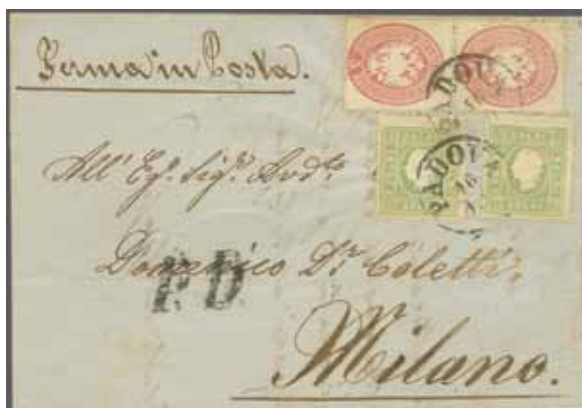 Ferma in Posta.
PADOVA
PADOVA
16
All' Eg. Sig.r Avv.to
Domenico D.r Coletti.
P.D.
Milano.